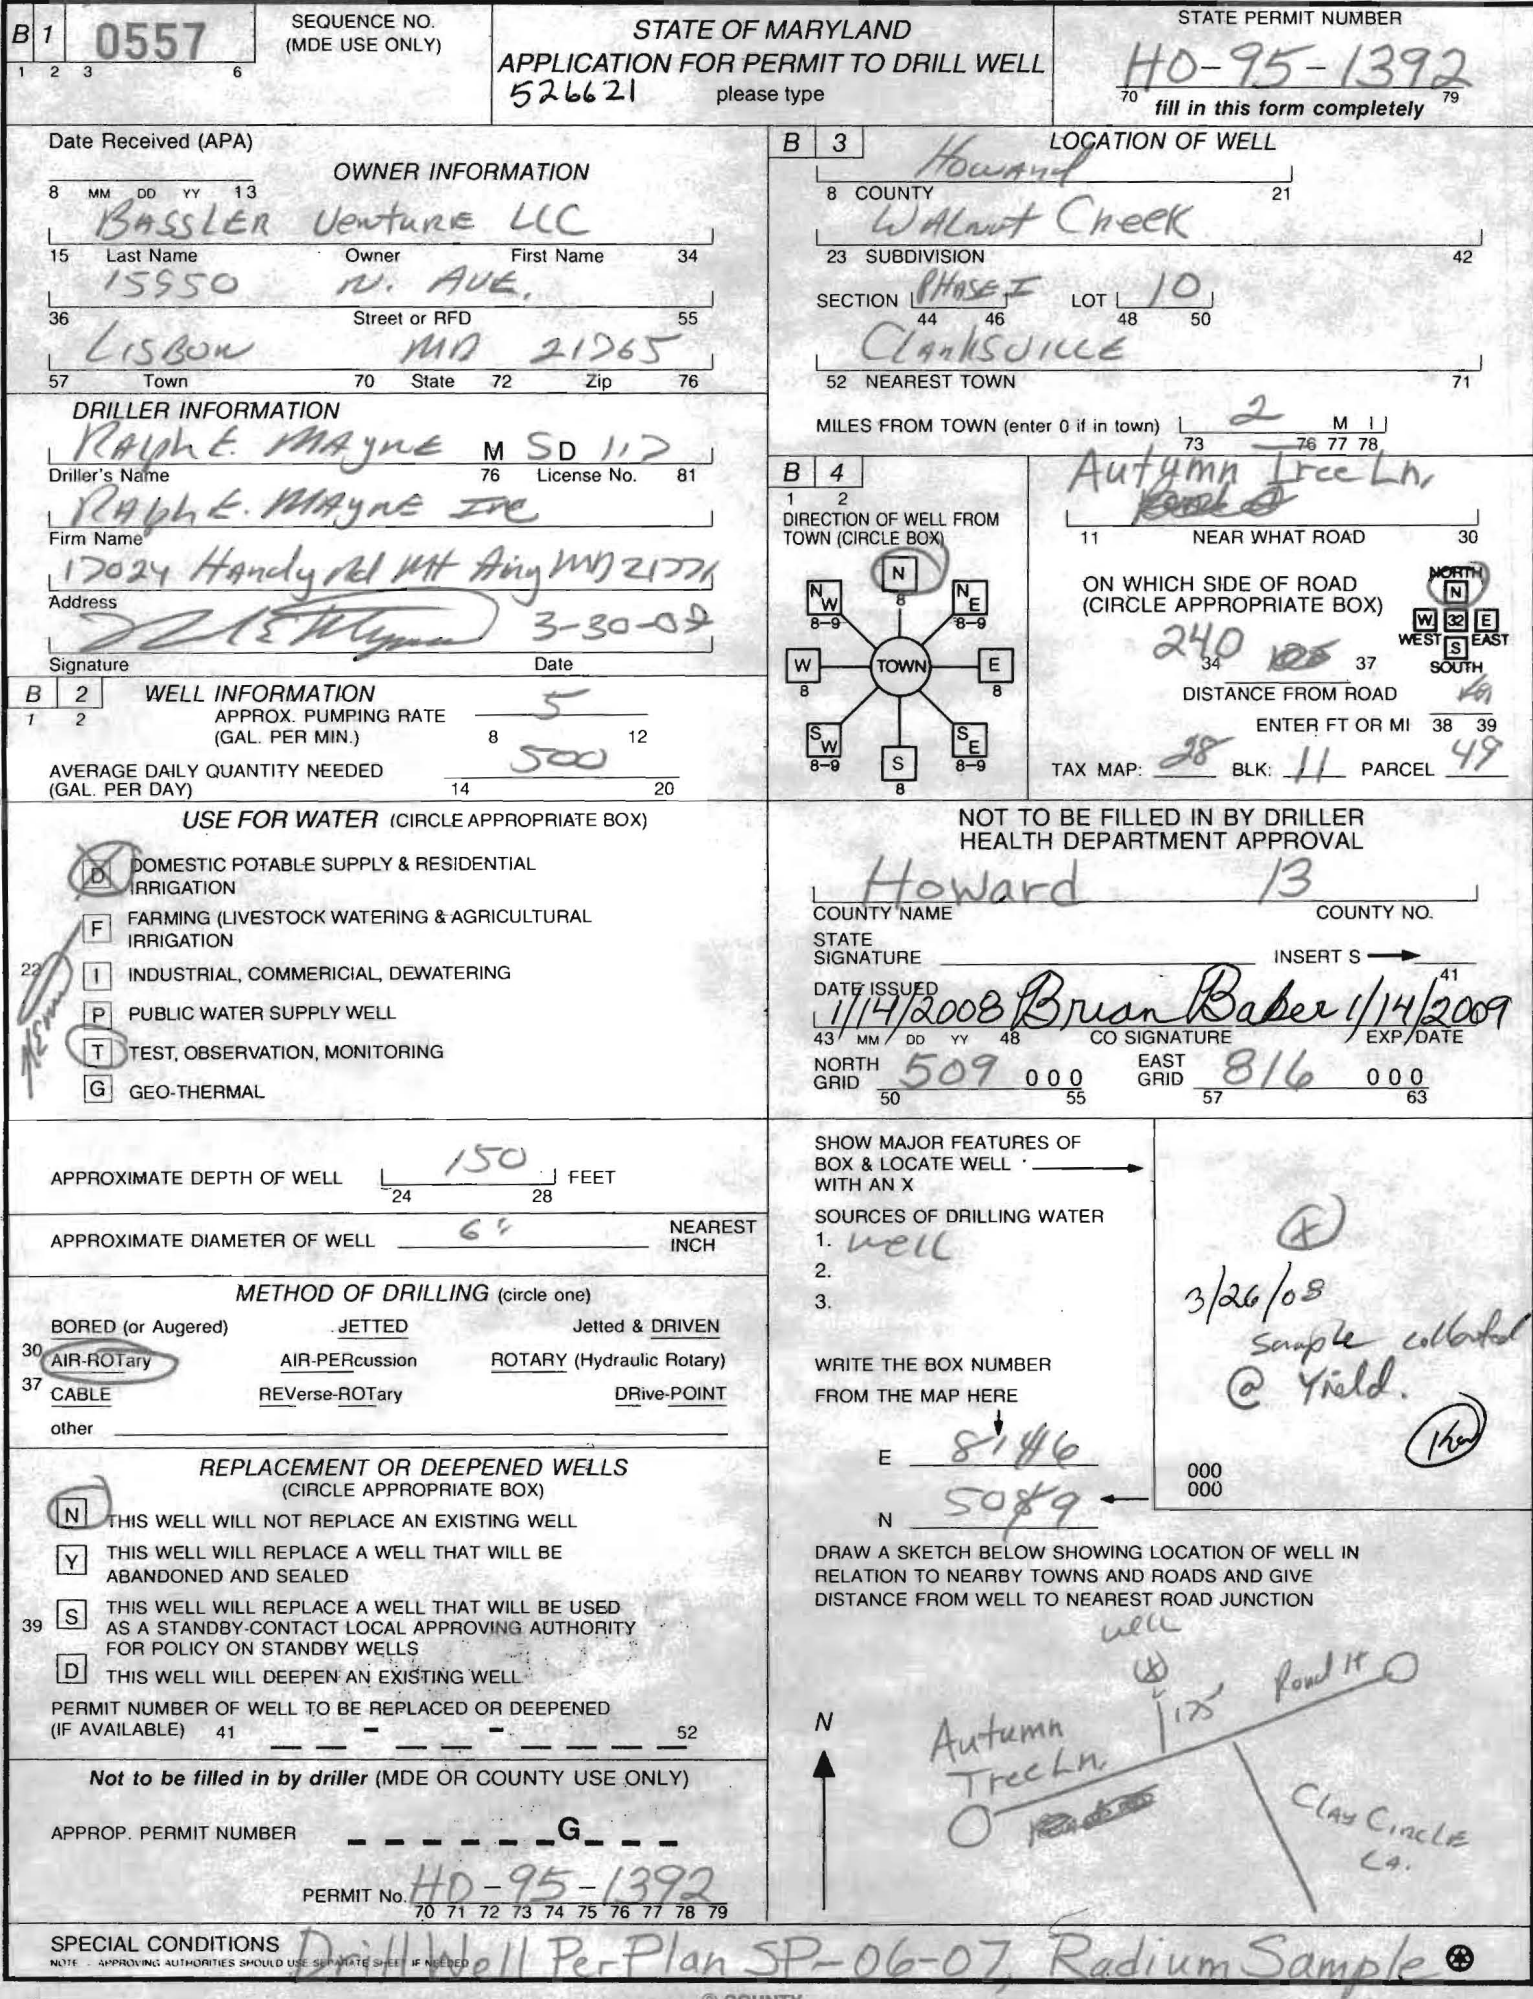 B 1 0557
1 2 3 6
SEQUENCE NO.
(MDE USE ONLY)
STATE OF MARYLAND
APPLICATION FOR PERMIT TO DRILL WELL
526621 please type
STATE PERMIT NUMBER
HO-95-1392
70 79
fill in this form completely
Date Received (APA)
8 MM DD YY 13
OWNER INFORMATION
BASSLER Venture LLC
15 Last Name Owner First Name 34
15950 N. AVE.
36 Street or RFD 55
LISBON MD 21765
57 Town 70 State 72 Zip 76
DRILLER INFORMATION
RALPH E. MAYNE M SD 117
Driller's Name 76 License No. 81
RALPH E. MAYNE Inc
Firm Name
17024 Handy Rd Mt Airy MD 21771
Address
3-30-07
Signature Date
B 2 WELL INFORMATION
1 2
APPROX. PUMPING RATE 5
(GAL. PER MIN.) 8 12
AVERAGE DAILY QUANTITY NEEDED 500
(GAL. PER DAY) 14 20
USE FOR WATER (CIRCLE APPROPRIATE BOX)
D DOMESTIC POTABLE SUPPLY & RESIDENTIAL
IRRIGATION
F FARMING (LIVESTOCK WATERING & AGRICULTURAL
IRRIGATION
22 I INDUSTRIAL, COMMERICIAL, DEWATERING
P PUBLIC WATER SUPPLY WELL
T TEST, OBSERVATION, MONITORING
G GEO-THERMAL
APPROXIMATE DEPTH OF WELL 150 FEET
24 28
APPROXIMATE DIAMETER OF WELL 6" NEAREST
INCH
METHOD OF DRILLING (circle one)
BORED (or Augered) JETTED Jetted & DRIVEN
30 AIR-ROTary AIR-PERcussion ROTARY (Hydraulic Rotary)
37 CABLE REVerse-ROTary DRive-POINT
other
REPLACEMENT OR DEEPENED WELLS
(CIRCLE APPROPRIATE BOX)
N THIS WELL WILL NOT REPLACE AN EXISTING WELL
Y THIS WELL WILL REPLACE A WELL THAT WILL BE
ABANDONED AND SEALED
39 S THIS WELL WILL REPLACE A WELL THAT WILL BE USED
AS A STANDBY-CONTACT LOCAL APPROVING AUTHORITY
FOR POLICY ON STANDBY WELLS
D THIS WELL WILL DEEPEN AN EXISTING WELL
PERMIT NUMBER OF WELL TO BE REPLACED OR DEEPENED
(IF AVAILABLE) 41 - - 52
Not to be filled in by driller (MDE OR COUNTY USE ONLY)
APPROP. PERMIT NUMBER G
PERMIT No. HO-95-1392
70 71 72 73 74 75 76 77 78 79
B 3 LOCATION OF WELL
Howard
8 COUNTY 21
Walnut Creek
23 SUBDIVISION 42
SECTION PHASE I LOT 10
44 46 48 50
Clarksville
52 NEAREST TOWN 71
MILES FROM TOWN (enter 0 if in town) 2 M I
73 76 77 78
B 4
1 2
DIRECTION OF WELL FROM
TOWN (CIRCLE BOX)
N
8
NW NE
8-9 8-9
W TOWN E
8 8
SW SE
8-9 8-9
S
8
Autumn Tree Ln.
11 NEAR WHAT ROAD 30
ON WHICH SIDE OF ROAD
(CIRCLE APPROPRIATE BOX)
NORTH
N
W 32 E
WEST S EAST
SOUTH
240
34 37
DISTANCE FROM ROAD
ENTER FT OR MI 38 39
TAX MAP: 28 BLK: 11 PARCEL 49
NOT TO BE FILLED IN BY DRILLER
HEALTH DEPARTMENT APPROVAL
Howard 13
COUNTY NAME COUNTY NO.
STATE
SIGNATURE INSERT S
41
DATE ISSUED
1/14/2008 Brian Baber 1/14/2009
43 MM DD YY 48 CO SIGNATURE EXP/DATE
NORTH GRID 509 000 EAST GRID 816 000
50 55 57 63
SHOW MAJOR FEATURES OF
BOX & LOCATE WELL
WITH AN X
SOURCES OF DRILLING WATER
1. well
2.
3.
WRITE THE BOX NUMBER
FROM THE MAP HERE
E 8146
N 5089
X
3/26/08
Sample collected
@ Yield.
000
000
DRAW A SKETCH BELOW SHOWING LOCATION OF WELL IN
RELATION TO NEARBY TOWNS AND ROADS AND GIVE
DISTANCE FROM WELL TO NEAREST ROAD JUNCTION
well
X
Road It
175'
Autumn
Tree Ln.
N
Clay Circle
SPECIAL CONDITIONS Drill Well Per Plan SP-06-07, Radium Sample
NOTE - APPROVING AUTHORITIES SHOULD USE SEPARATE SHEET IF NEEDED